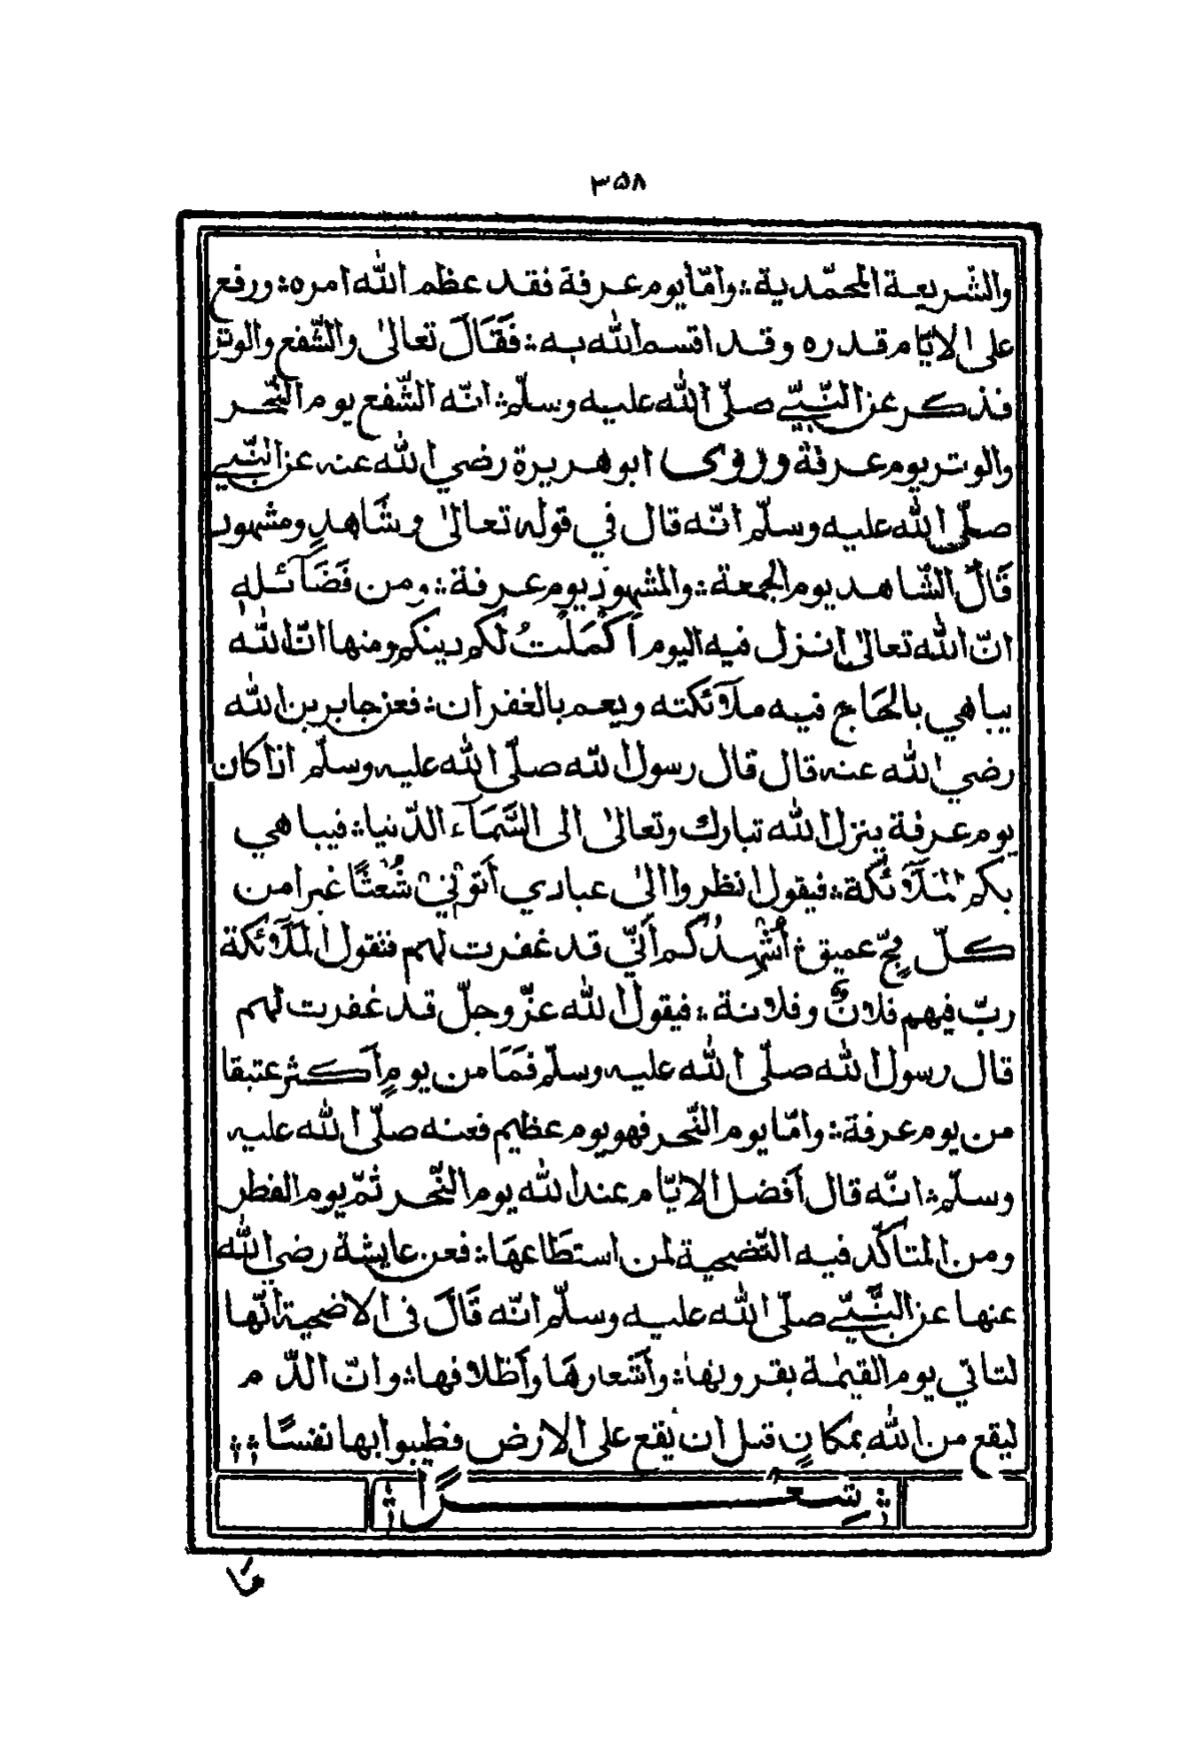 ٣٥٨
والشّريعة المحمّدية ؞ وامّا يوم عرفة فقد عظم الله امره ؞ ورفع
على الايّام قدره وقد اقسم الله به ؞ فَقَالَ تعالىٰ والشّفع والوتر
فذكر عن النّبيّ صلّى الله عليه وسلّم ؞ انّه الشّفع يوم النّحر
والوتر يوم عرفة وروى ابو هريرة رضي الله عنه عن النّبيّ
صلّى الله عليه وسلّم انّه قال في قوله تعالىٰ وشَاهدٍ ومشهودٍ
قَالَ الشّاهد يوم الجمعة ؞ والمشهود يوم عرفة ؞ ومن فَضَآئله
انّ الله تعالىٰ انزل فيه اليوم اَكْمَلْتُ لكم دينكم ومنها انّ الله
يباهي بالحَاج فيه ملآئكته ويعم بالغفران ؞ فعن جابر بن الله
رضي الله عنه قال قال رسول الله صلّى الله عليه وسلّم اذا كان
يوم عرفة ينزل الله تبارك وتعالىٰ الى السَّمَآء الدّنيا ؞ فيباهي
بكم المَلَآئكة ؞ فيقول انظروا الىٰ عبادي أتوْنيْ شُعْثًا غبرا من
كلّ فجّ عميق ؞ أُشْهِدُكُم أَنّي قد غفرت لهم فتقول المَلَآئكة
ربّ فيهم فلانٌ وفلانة ؞ فيقول الله عزّ وجلّ قد غفرت لهم
قال رسول الله صلّى الله عليه وسلّم فَمَا من يومٍ اَكثر عتيقا
من يوم عرفة ؞ وامّا يوم النّحر فهو يوم عظيم فعنه صلّى الله عليه
وسلّم ؞ انّه قال أفضل الايّام عند الله يوم النّحر ثمّ يوم الفطر
ومن المتأكّد فيه التّضحية لمن استطَاعهَا ؞ فعن عايشة رضي الله
عنها عن النّبيّ صلّى الله عليه وسلّم انّه قَالَ فى الاضحية انّها
لتاتي يوم القيٰمة بقرونها ؞ وأشعارهَا وأظلافها ؞ وانّ الدّم
ليقع من الله بمكانٍ قبل ان يقع على الارض فطيبوا بها نفسًا ؞ ؞
؞ شِعْرًا ؞